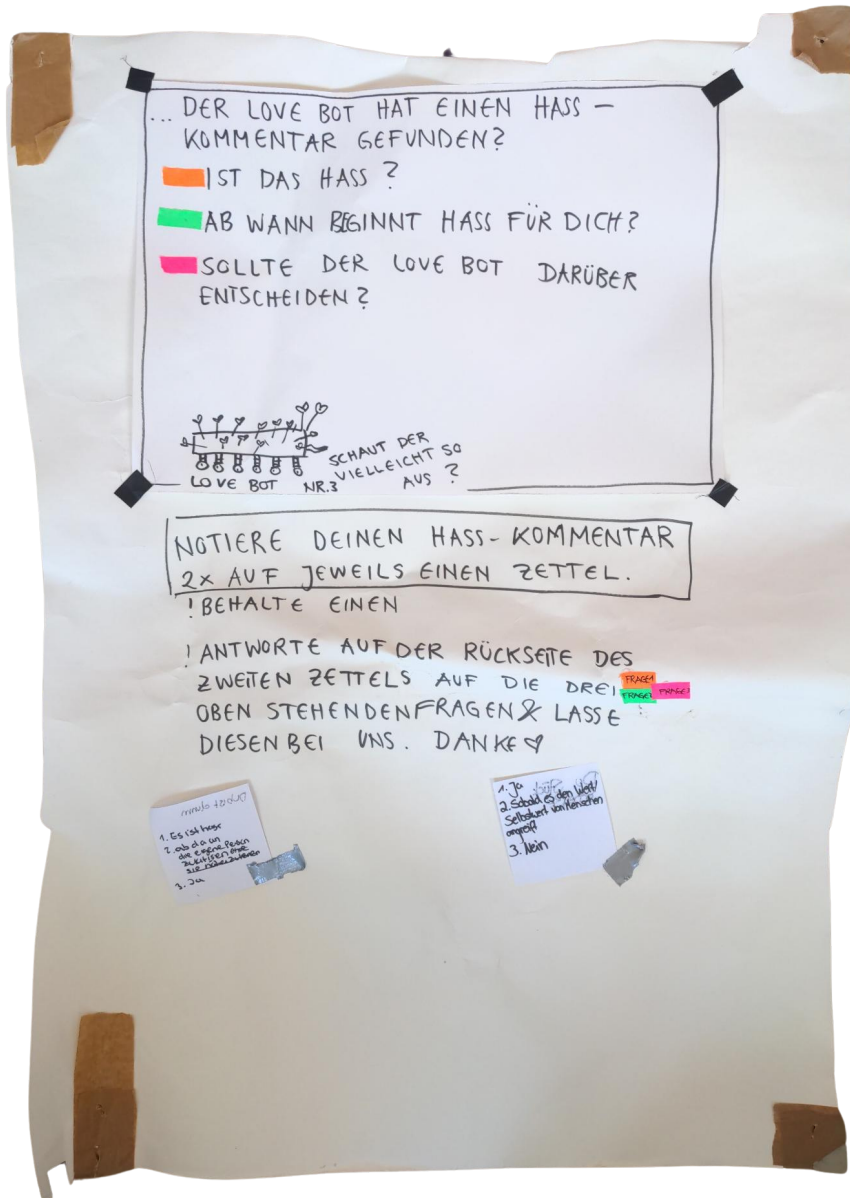 ... DER LOVE BOT HAT EINEN HASS –
KOMMENTAR GEFUNDEN?
IST DAS HASS ?
AB WANN BEGINNT HASS FÜR DICH?
SOLLTE DER LOVE BOT DARÜBER
ENTSCHEIDEN?
SCHAUT DER
VIELLEICHT SO
AUS ?
LOVE BOT NR.3
NOTIERE DEINEN HASS-KOMMENTAR
2x AUF JEWEILS EINEN ZETTEL.
! BEHALTE EINEN
! ANTWORTE AUF DER RÜCKSEITE DES
ZWEITEN ZETTELS AUF DIE DREI
FRAGE1
FRAGE2 FRAGE3
OBEN STEHENDEN FRAGEN & LASSE
DIESEN BEI UNS. DANKE ♡
1. Es ist hass
2. ab da an
die eigene Person
3. Ja
1. Ja
2. Sobald es den Wert/
Selbstwert von Menschen
angreift
3. Nein